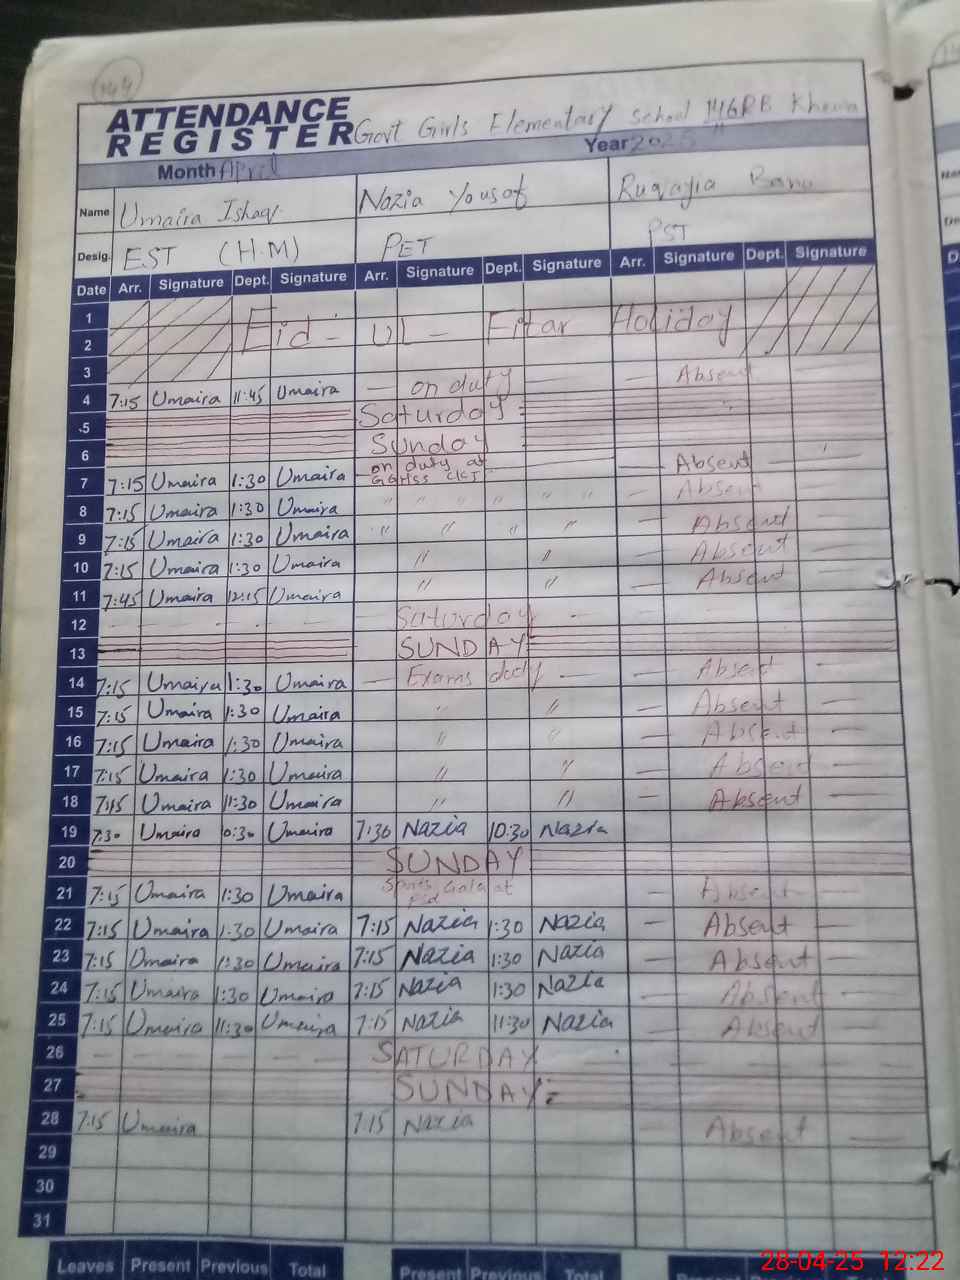 144
ATTENDANCE
REGISTER Govt Girls Elementary School 146RB Khewa
Month April Year 2025
Name Umaira Ishaq Nazia Yousaf Ruqayia Bano
Desig. EST (H.M) PET PST
Date Arr. Signature Dept. Signature Arr. Signature Dept. Signature Arr. Signature Dept. Signature
1
2 Eid - UL - Fitar Holiday
3
4 7:15 Umaira 11:45 Umaira — on duty — — Absent —
5 Saturday
6 Sunday
7 7:15 Umaira 1:30 Umaira on duty at — Absent —
8 7:15 Umaira 1:30 Umaira " " " " " " — Absent —
9 7:15 Umaira 1:30 Umaira " " " " — Absent —
10 7:15 Umaira 1:30 Umaira " " — Absent —
11 7:45 Umaira 12:15 Umaira " " — Absent —
12 Saturday
13 SUNDAY
14 7:15 Umaira 1:30 Umaira — Exams duty — — Absent —
15 7:15 Umaira 1:30 Umaira " " — Absent —
16 7:15 Umaira 1:30 Umaira " " — Absent —
17 7:15 Umaira 1:30 Umaira " " — Absent —
18 7:15 Umaira 11:30 Umaira " " — Absent —
19 7:30 Umaira 0:30 Umaira 7:30 Nazia 10:30 Nazia
20 SUNDAY
21 7:15 Umaira 1:30 Umaira Sports Gala at — Absent —
22 7:15 Umaira 1:30 Umaira 7:15 Nazia 1:30 Nazia — Absent —
23 7:15 Umaira 1:30 Umaira 7:15 Nazia 1:30 Nazia — Absent —
24 7:15 Umaira 1:30 Umaira 7:15 Nazia 1:30 Nazia — Absent —
25 7:15 Umaira 11:30 Umaira 7:15 Nazia 11:30 Nazia — Absent —
26 SATURDAY
27 SUNDAY
28 7:15 Umaira 7:15 Nazia — Absent —
29
30
31
Leaves Present Previous Total Present Previous Total Present
28-04-25 12:22